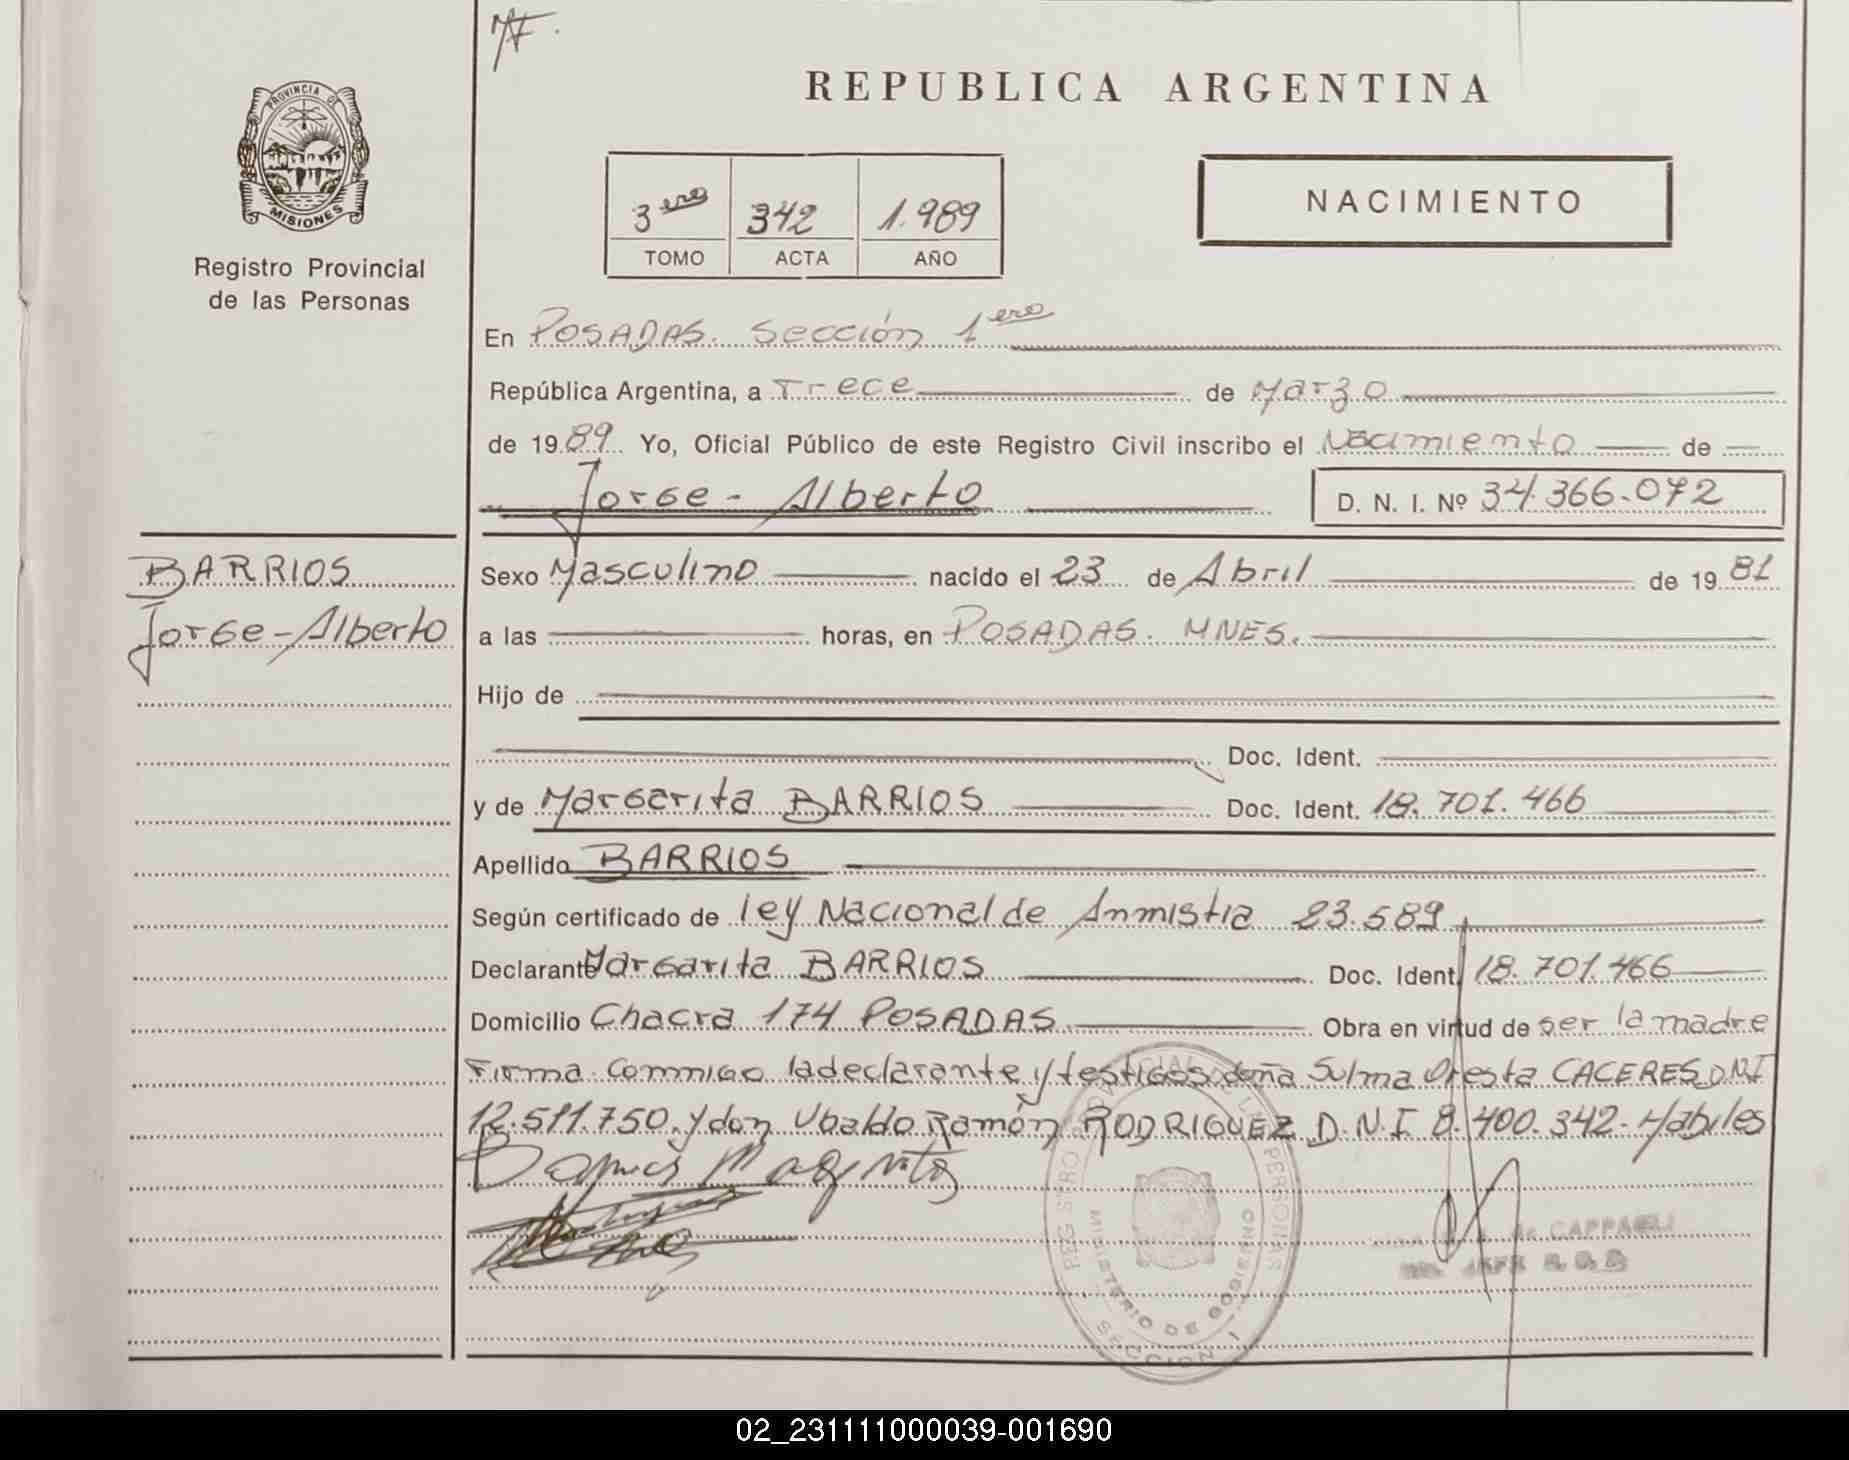 MF.
REPUBLICA ARGENTINA
PROVINCIA DE
MISIONES
Registro Provincial
de las Personas
3ero 342 1.989
TOMO ACTA AÑO
NACIMIENTO
En POSADAS. Sección 1ero
República Argentina, a Trece de Marzo
de 1989 Yo, Oficial Público de este Registro Civil inscribo el Nacimiento de
Jorge - Alberto D. N. I. Nº 34.366.072
BARRIOS
Jorge - Alberto
Sexo Masculino nacido el 23 de Abril de 1981
a las horas, en POSADAS. MNES.
Hijo de
Doc. Ident.
y de Margarita BARRIOS Doc. Ident. 18.701.466
Apellido BARRIOS
Según certificado de ley Nacional de Anmistia 23.589
Declarante Margarita BARRIOS Doc. Ident. 18.701.466
Domicilio Chacra 174 POSADAS Obra en virtud de ser la madre
Firma conmigo la declarante y testigos doña Sulma Oresta CACERES D.N.I
12.511.750. y don Ubaldo Ramón RODRIGUEZ D.N.I 8.400.342. Habiles
REGISTRO PROVINCIAL DE LAS PERSONAS
MINISTERIO DE GOBIERNO
SECCION 1
de CAPPAELLI
JEFE
02_231111000039-001690